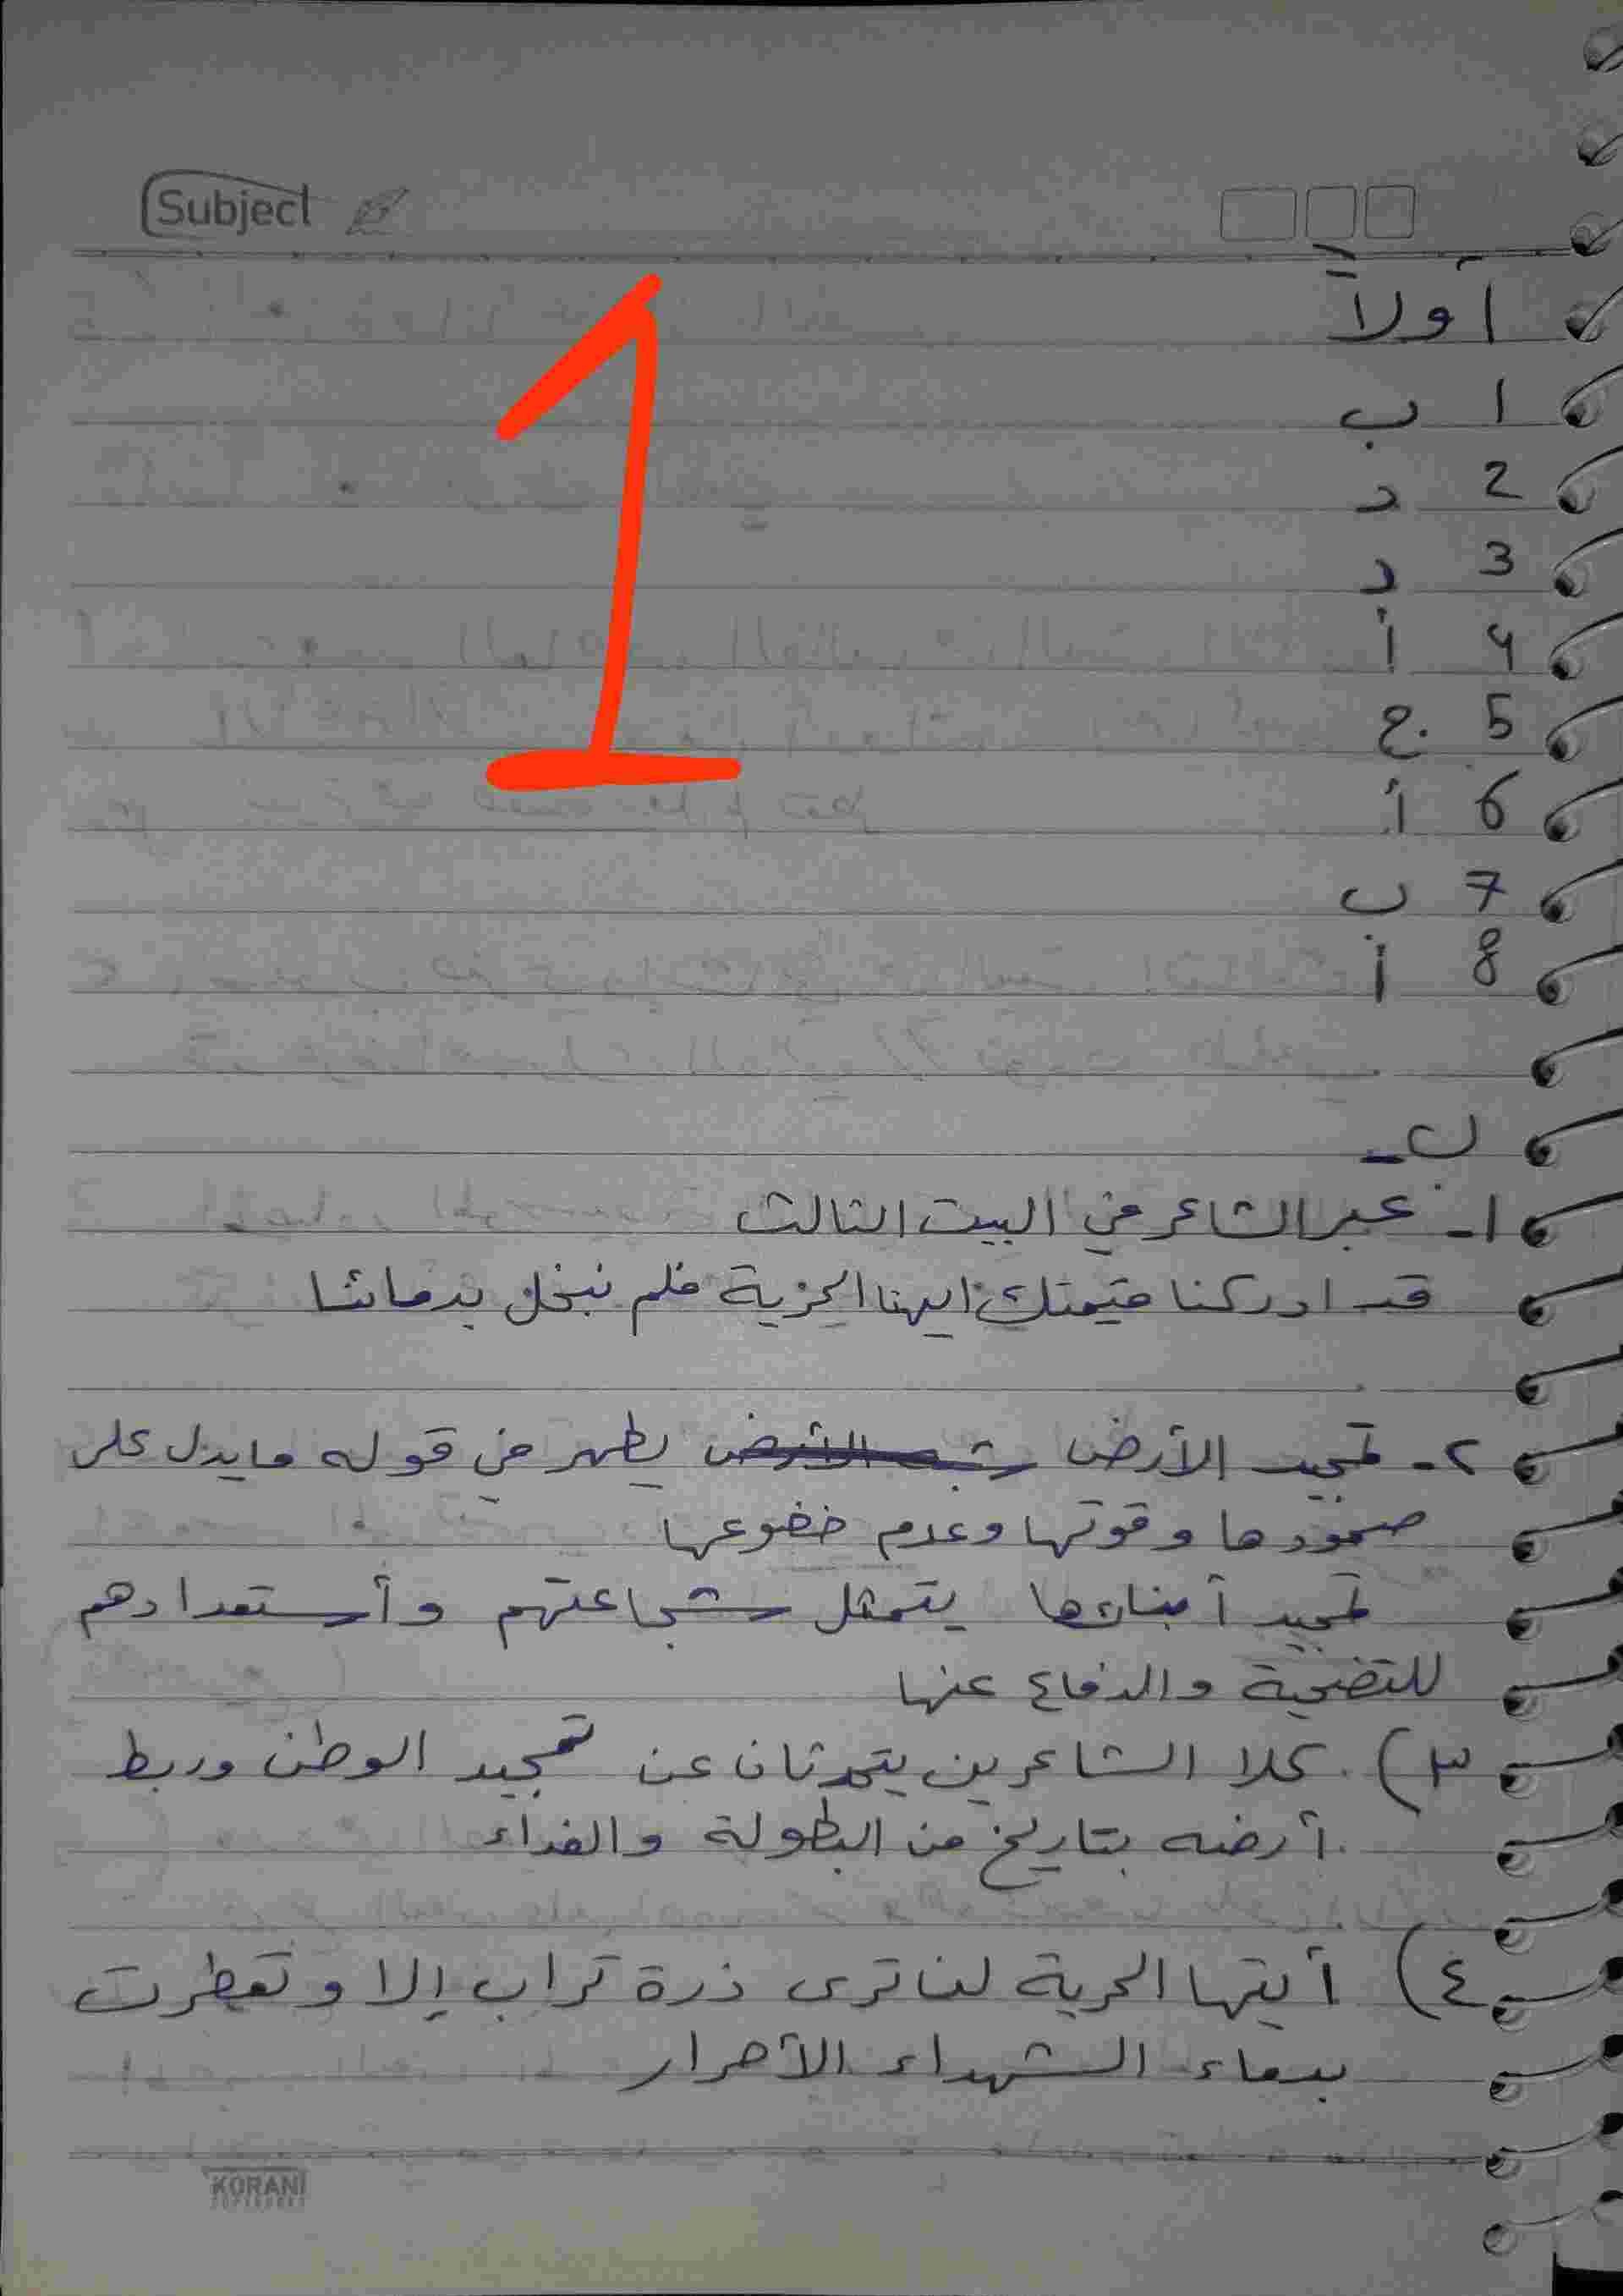 Subject
أولاً
1 ب
2 د
3 د
4 أ
5 ج
6 أ
7 ب
8 أ
1
ب -
1- عبر الشاعر في البيت الثالث
قد ادركنا قيمتك ايهنا الحرية فلم نبخل بدمائنا
٢- تمجيد الأرض يظهر في قوله ما يدل على
صمودها وقوتها وعدم خضوعها
تمجيد أبنائها يتمثل شجاعتهم وأستعدادهم
للتضحية والدفاع عنها
٣) كلا الشاعرين يتحدثان عن تمجيد الوطن وربط
أرضه بتاريخ من البطولة والفداء
٤) أيتها الحرية لن ترى ذرة تراب إلا وتعطرت
بدماء الشهداء الأحرار
KORANI